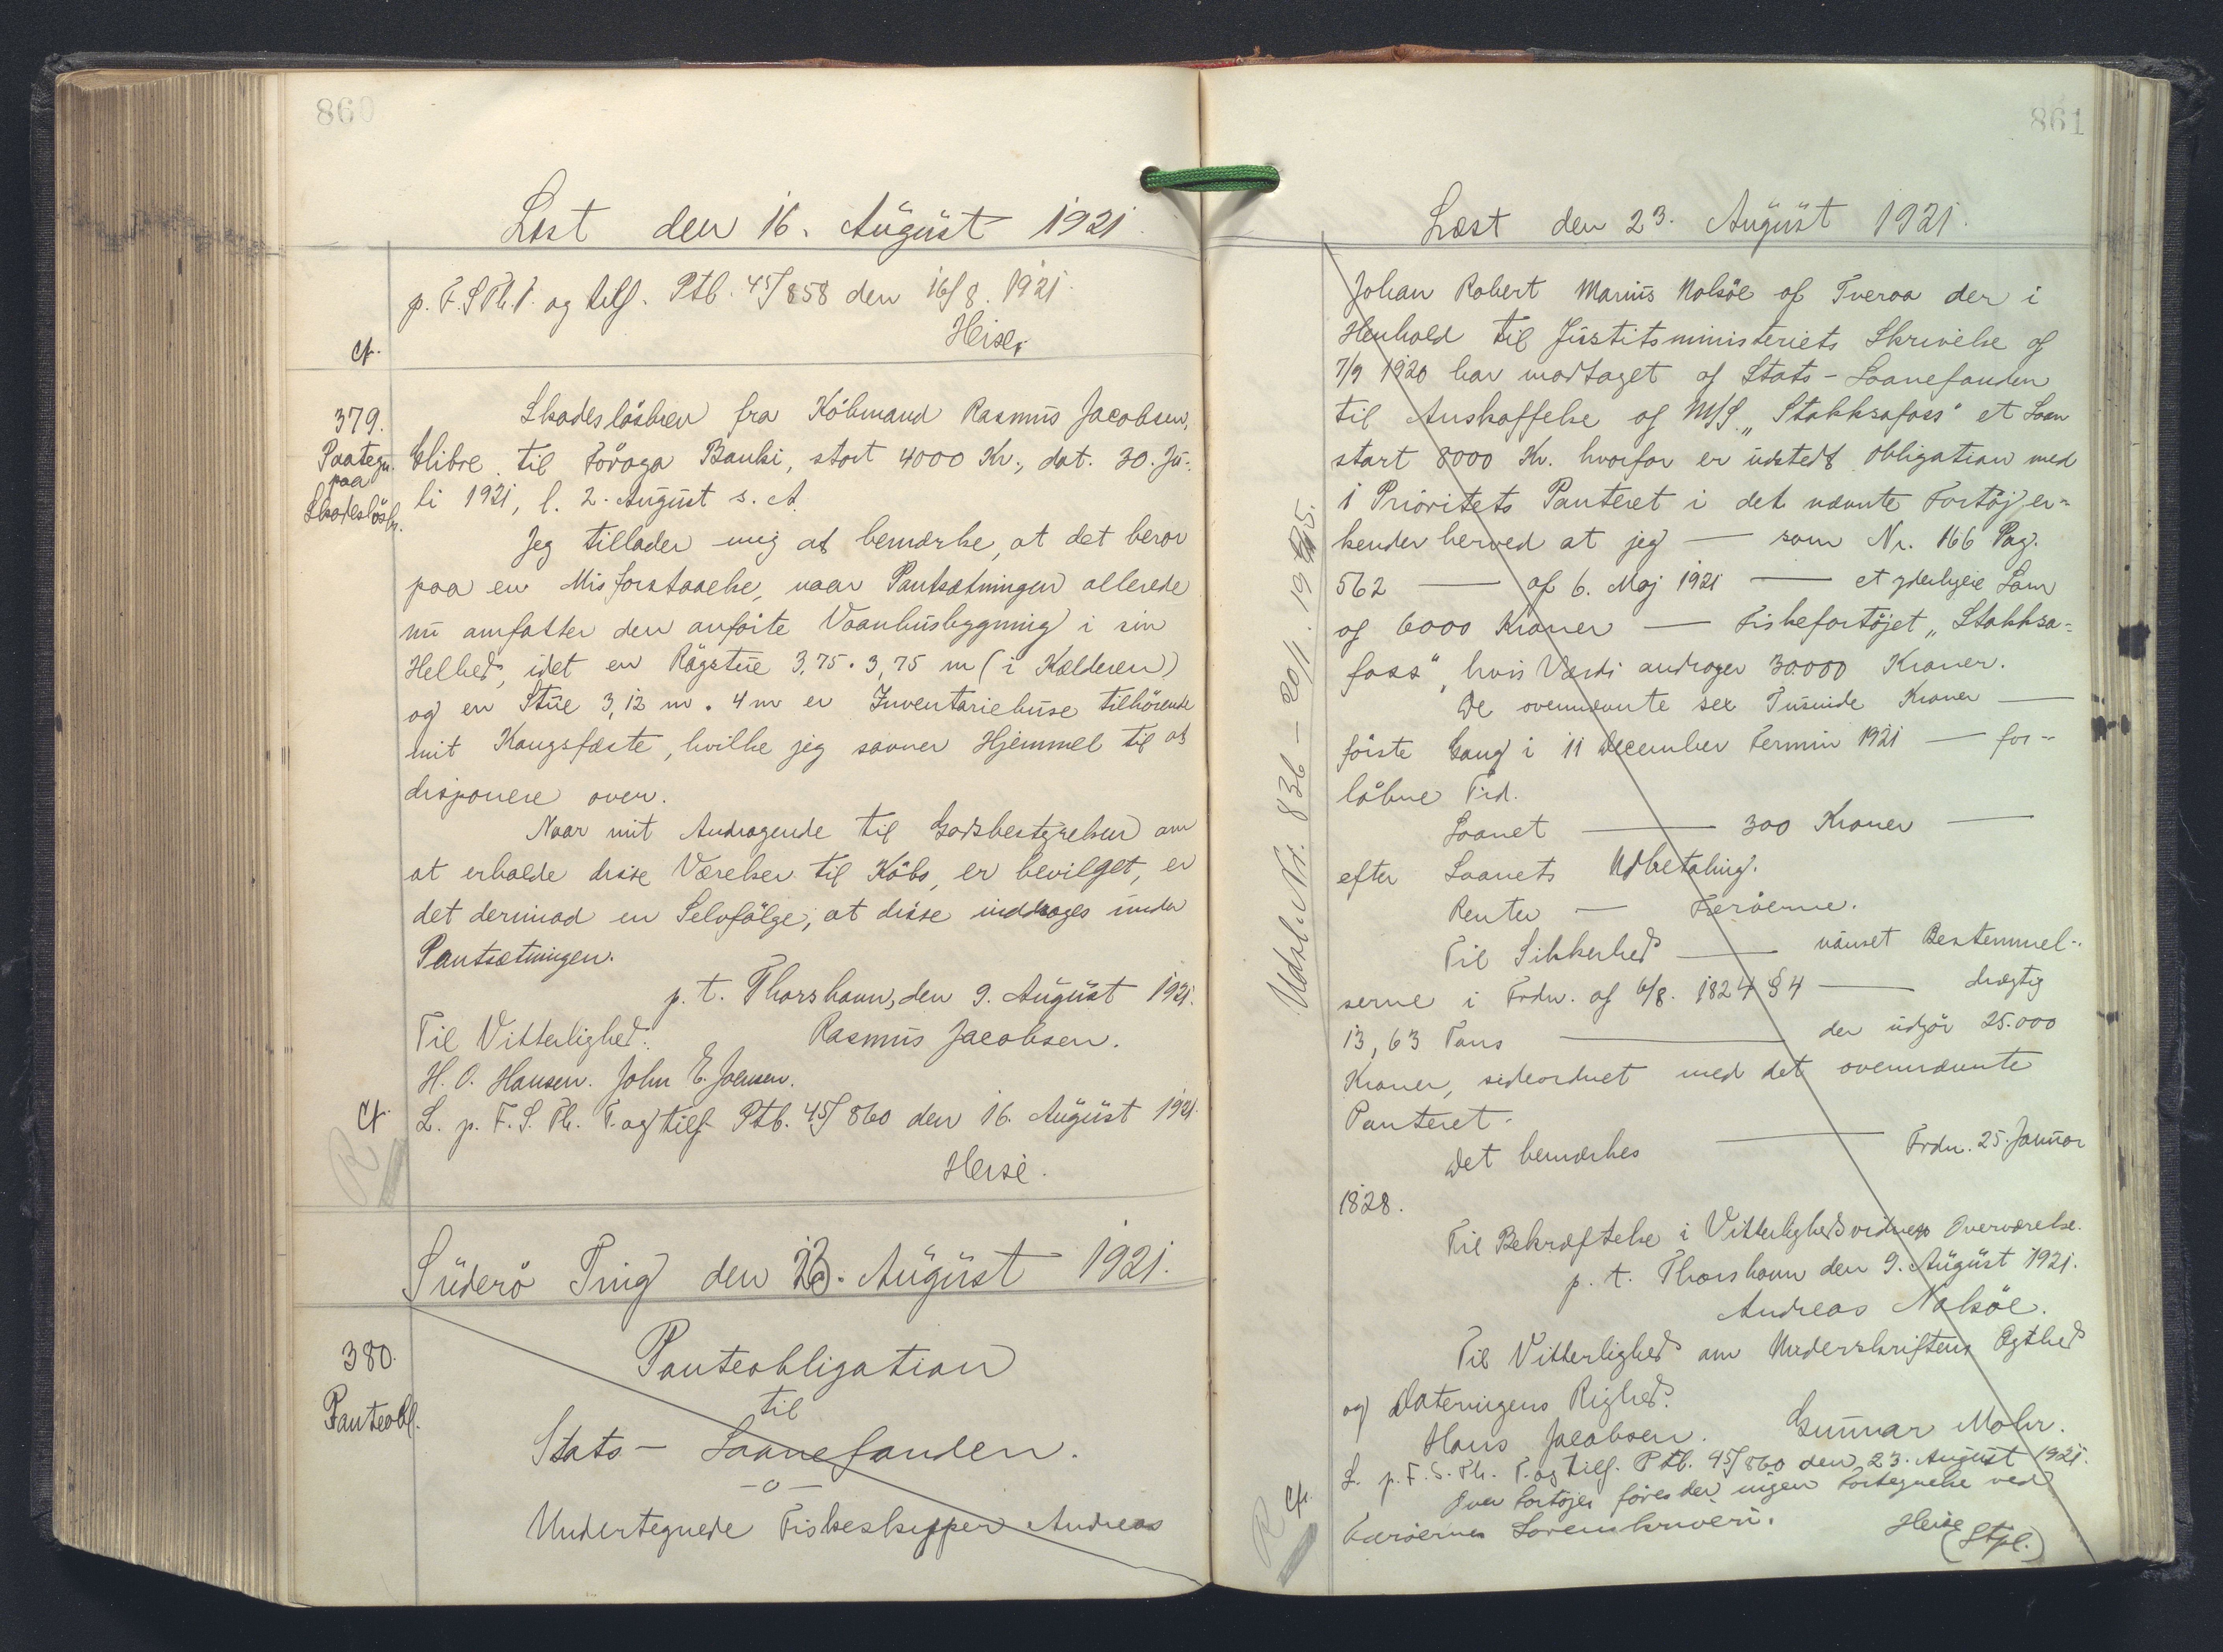 860
Læst den 16. August 1921.
p. F. S. Th. T. og tilf. Ptb. 45/858 den 16/8. 1921.
Heise
Cfr.
379.
Paategn.
paa
Skadeslösbr.
Skadeslösbrev fra Köbmand Rasmus Jacobsen,
Glibre til Föroya Banki, stort 4000 Kr., dat. 30. Ju-
li 1921, l. 2. August s. A.
Jeg tillader mig at bemærke, at det beror
paa en Misforstaaelse, naar Pantsætningen allerede
nu omfatter den anförte Vaanhusbygning i sin
Helhed, idet en Rögstue 3,75 . 3,75 m (i Kælderen)
og en Stue 3,12 m . 4 m er Inventariehuse tilhörende
mit Kongsfæste, hvilke jeg savner Hjemmel til at
disponere over.
Naar mit Andragende til Godsbestyrelsen om
at erholde disse Værelser til Köbs, er bevilget, er
det derimod en Selvfölge, at disse inddrages under
Pantsætningen.
p. t. Thorshavn, den 9. August 1921.
Til Vitterlighed: Rasmus Jacobsen.
H. O. Hansen. John E. Joensen.
Cfr. L. p. F. S. Th. T. og tilf. Ptb. 45/860 den 16. August 1921.
Heise.
R
Suderö Ting den 23. August 1921.
380.
Panteobl.
Panteobligation
til
Stats-Laanefonden.
-o-
Undertegnede Fiskeskipper Andreas
861
Læst den 23. August 1921.
Johan Robert Marius Nolsöe af Tveraa der i
Henhold til Justitsministeriets Skrivelse af
7/9 1920 har modtaget af Stats-Laanefonden
til Anskaffelse af M/S. „Stakksafoss" et Laan
stort 8000 Kr. hvorfor er udstedt Obligation med
1 Prioritets Panteret i det nævnte Fartöj er-
kender herved at jeg — som Nr. 166 Pag.
562 — af 6. Maj 1921 — et yderligere Laan
af 6000 Kroner — Fiskefartöjet „Stakksa-
foss", hvis Værdi andrager 30.000 Kroner.
De ovennævnte sex Tusinde Kroner —
förste Gang i 11 December Termin 1921 — for-
löbne Tid.
Laanet — 300 Kroner —
efter Laanets Udbetaling.
Renter — Færöerne.
Til Sikkerhed — uanset Bestemmel-
serne i Frdn. af 6/8. 1824 § 4 — drægtig
13,63 Tons — der udgör 25.000
Kroner, sideordnet med det ovennævnte
Panteret.
Det bemærkes — Frdn. 25. Januar
1828.
Til Bekræftelse i Vitterlighedsvidners Overværelse.
p. t. Thorshavn den 9. August 1921.
Andreas Nolsöe.
Til Vitterlighed om Underskriftens Ægthed
og Dateringens Righed:
Hans Jacobsen. Gunnar Mohr.
Cfr. L. p. F. S. Th. T. og tilf. Ptb. 45/860 den 23. August 1921.
Over Fartöjer föres der ingen Fortegnelse ved
Færöernes Sorenskriveri. Heise
(Stpl.)
R
Udsl. Nr. 836 - 20/1. 1925.